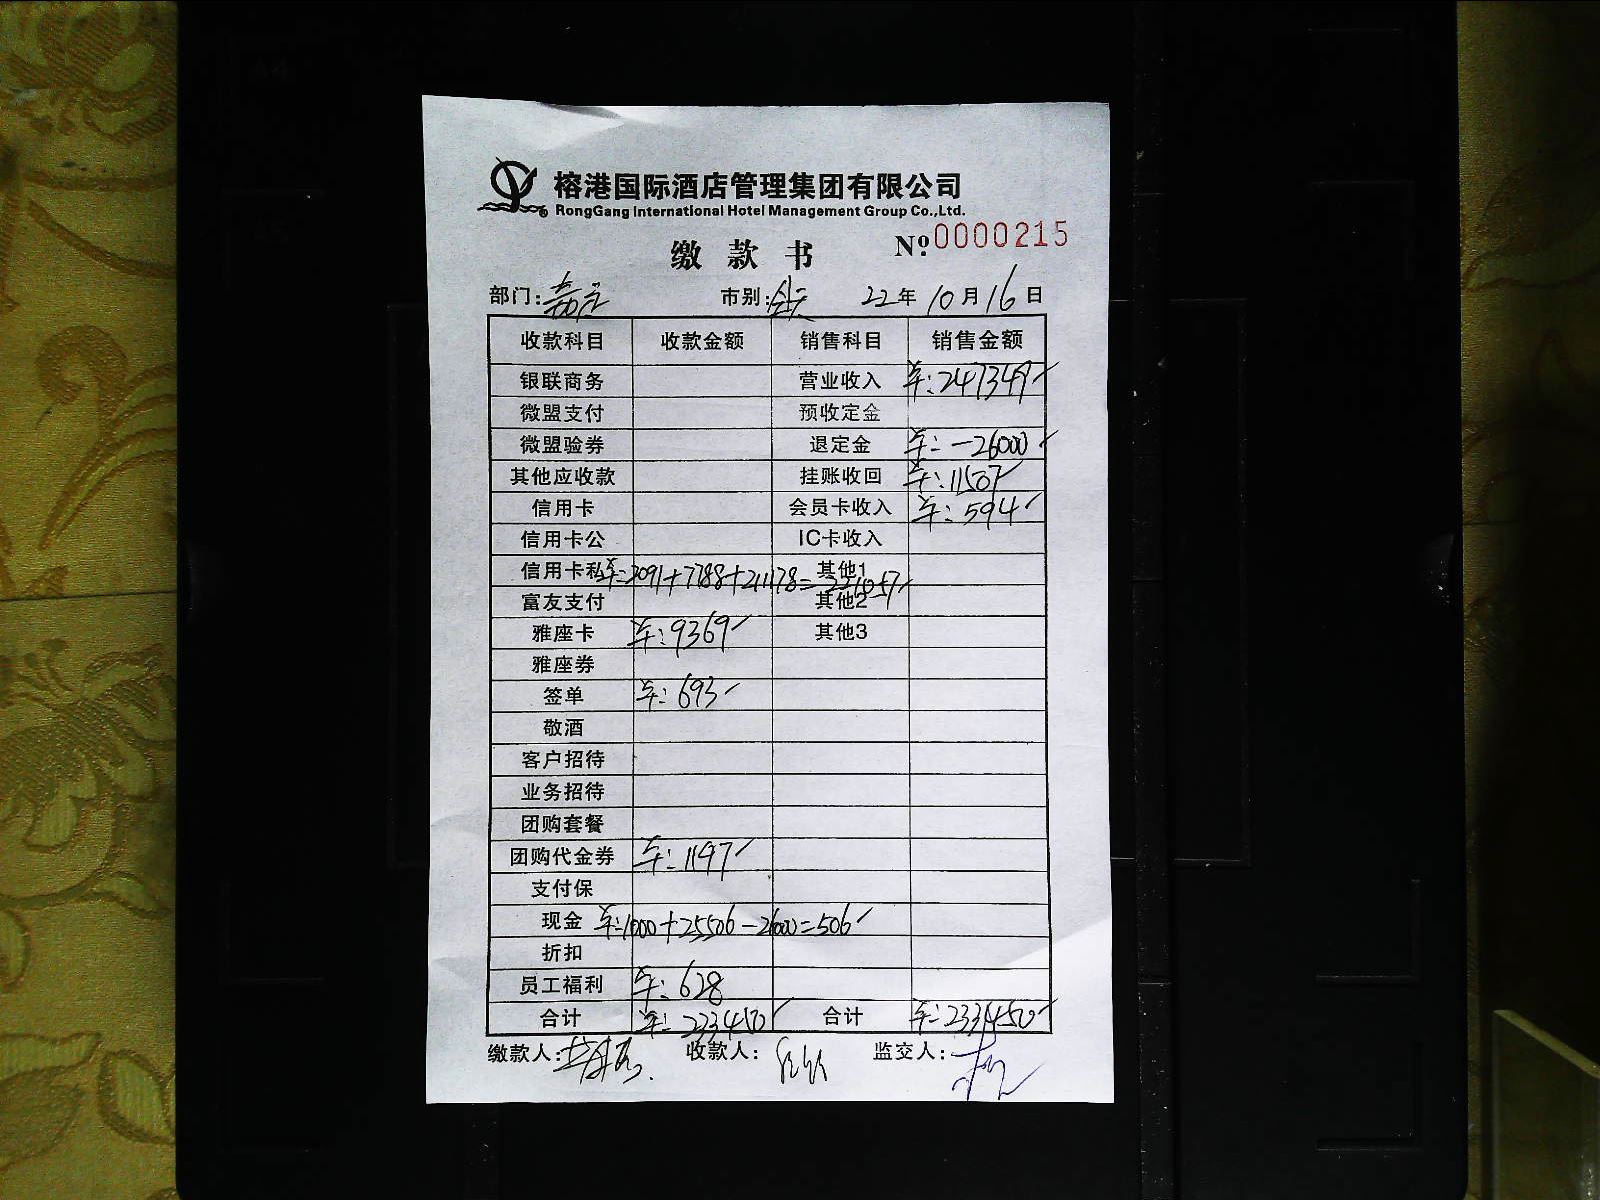 榕港国际酒店管理集团有限公司
RongGang International Hotel Management Group Co.,Ltd.
缴款书 Nº:0000215
部门: 市别:全天 22年10月16日
收款科目 收款金额 销售科目 销售金额
银联商务 营业收入 ¥:247349
微盟支付 预收定金
微盟验券 退定金 ¥:-26000
其他应收款 挂账收回 ¥:11507
信用卡 会员卡收入 ¥:594
信用卡公 IC卡收入
信用卡私 ¥:2091+7788+211178=221057 其他1
富友支付 其他2
雅座卡 ¥:9369 其他3
雅座券
签单 ¥:693
敬酒
客户招待
业务招待
团购套餐
团购代金券 ¥:1197
支付保
现金 ¥:1000+25506-26000=506
折扣
员工福利 ¥:628
合计 ¥:233450 合计 ¥:233450
缴款人: 收款人: 监交人: